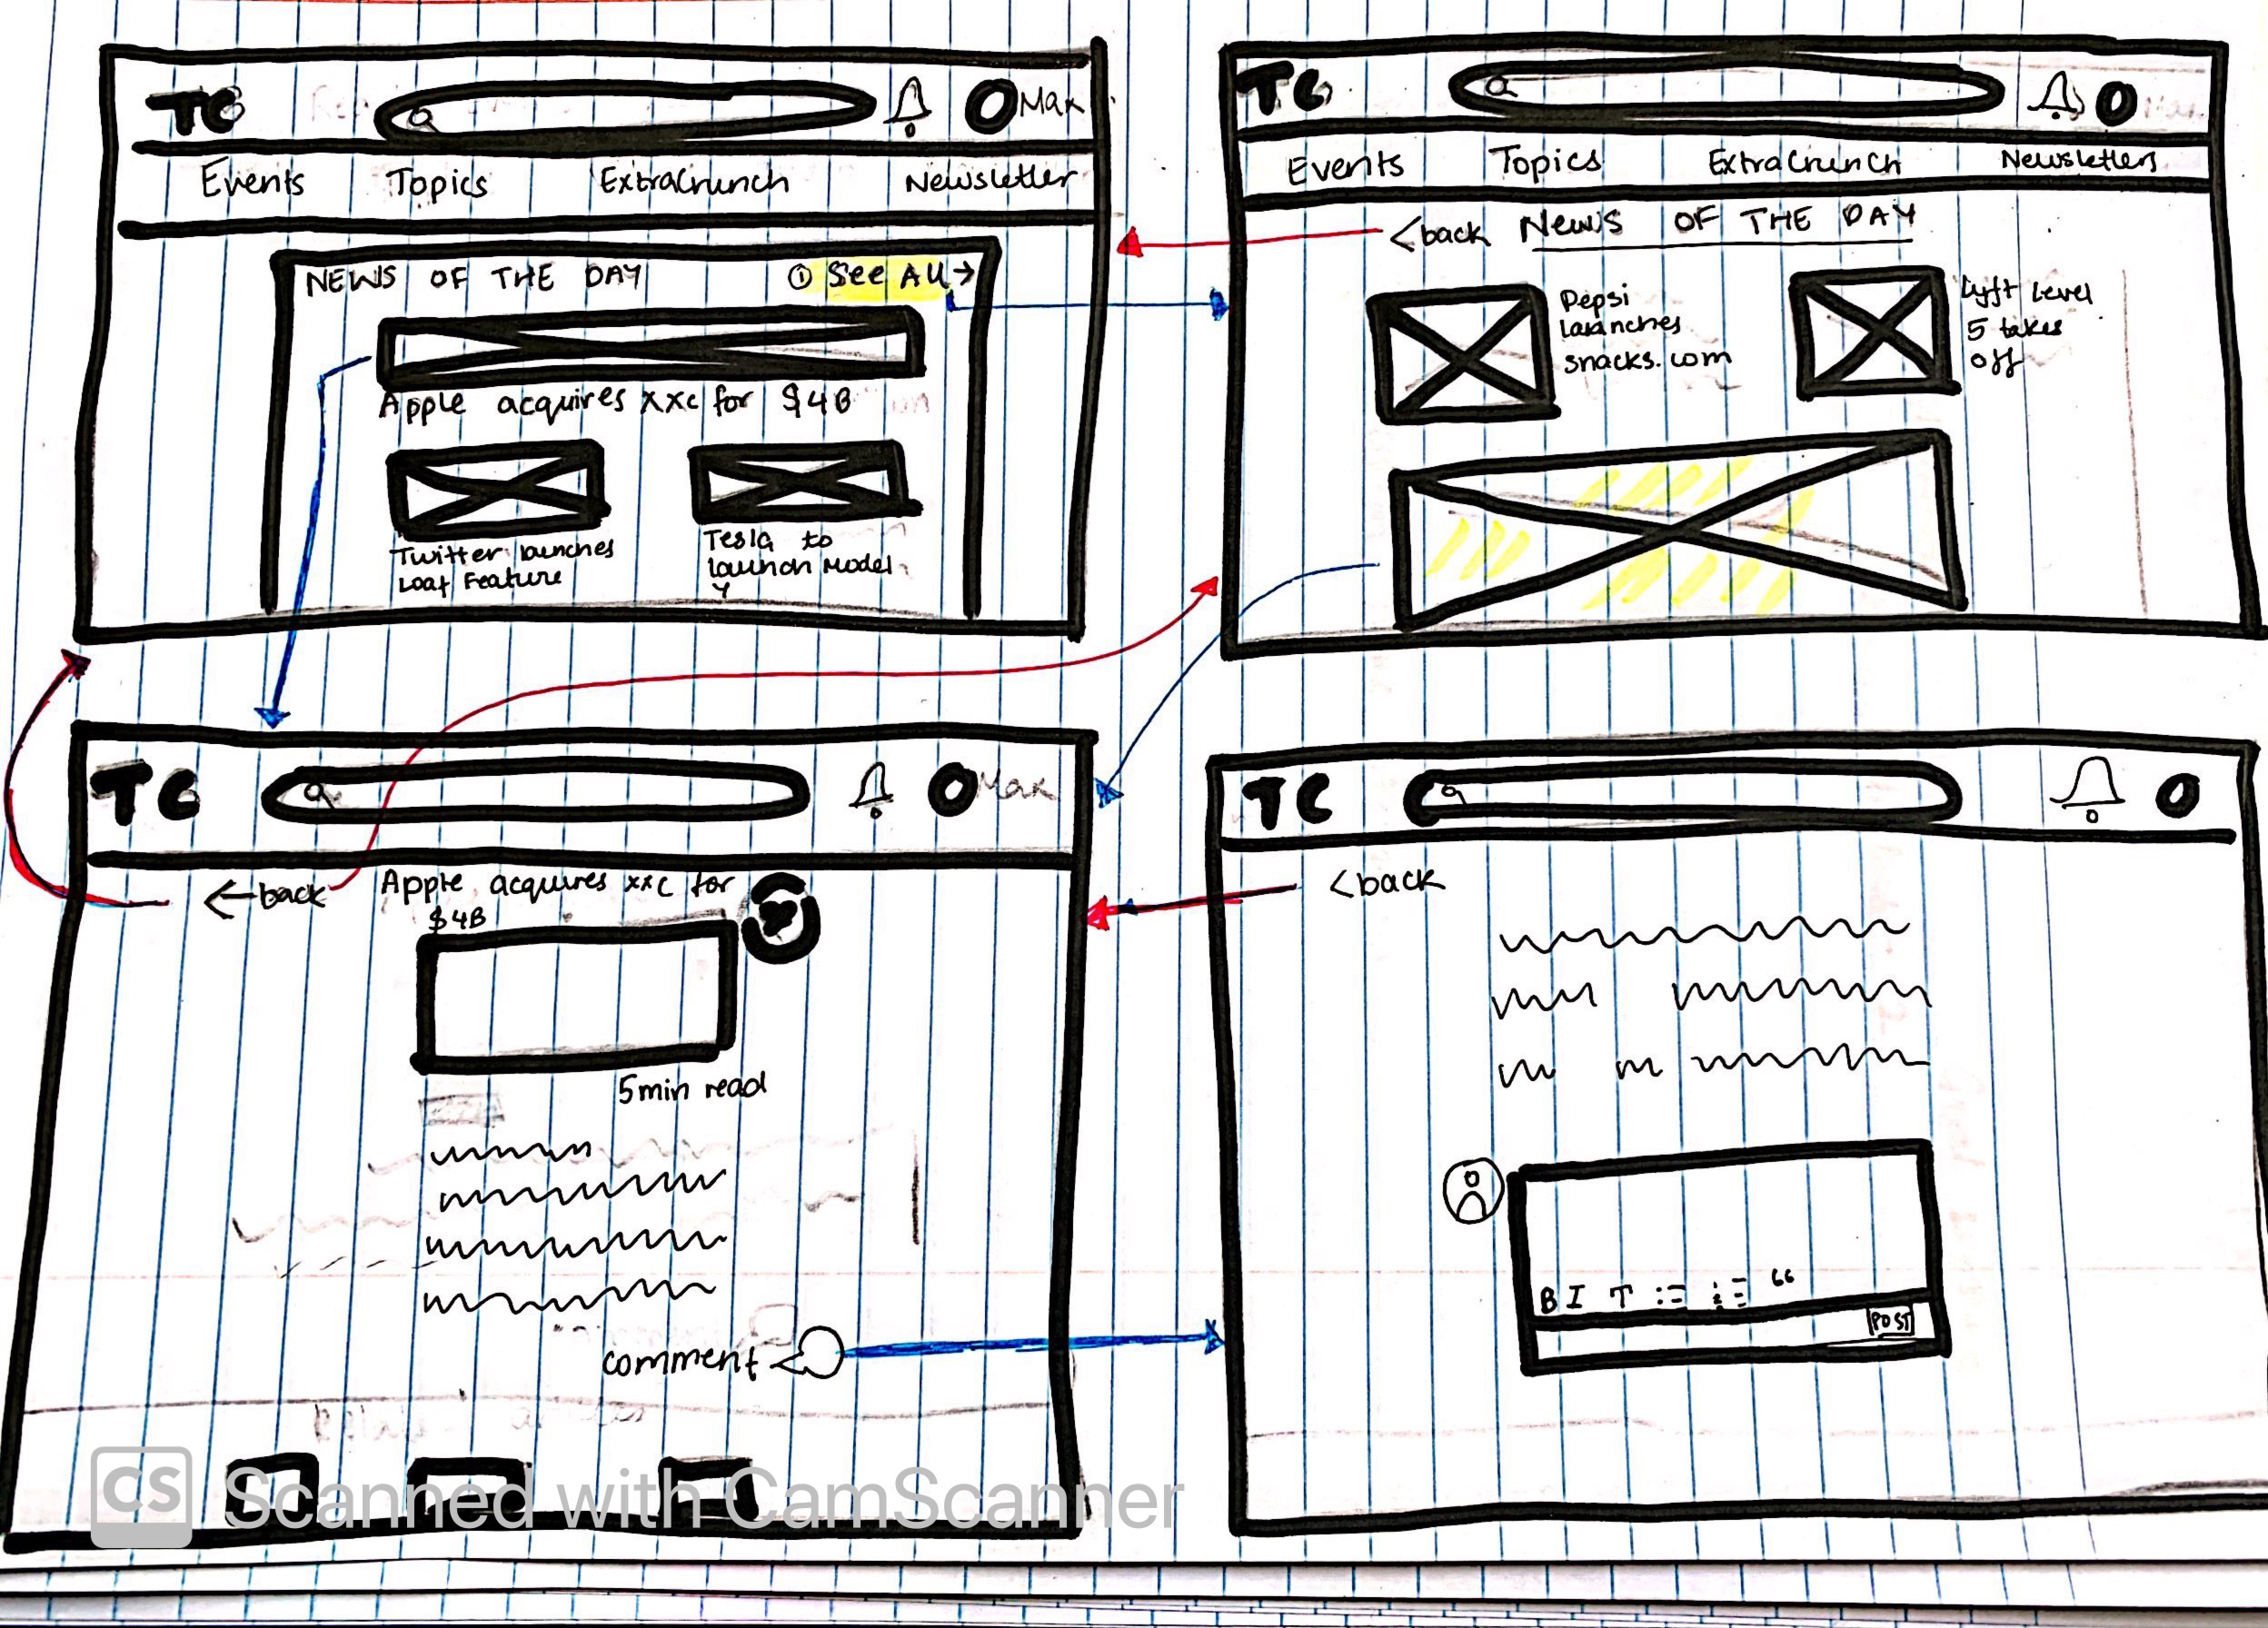 TC Max
Events Topics ExtraCrunch Newsletter
NEWS OF THE DAY ① See All →
Apple acquires xxc for $4B
Twitter launches
Loaf Feature
Tesla to
launch Model
Y
TC
Events Topics ExtraCrunch Newsletters
<back News OF THE DAY
Pepsi
launches
snacks.com
Lyft Level
5 takes
off
TC Max
←back Apple acquires xxc for
$4B
5min read
comment
TC
<back
B I T “
POST
CS Scanned with CamScanner